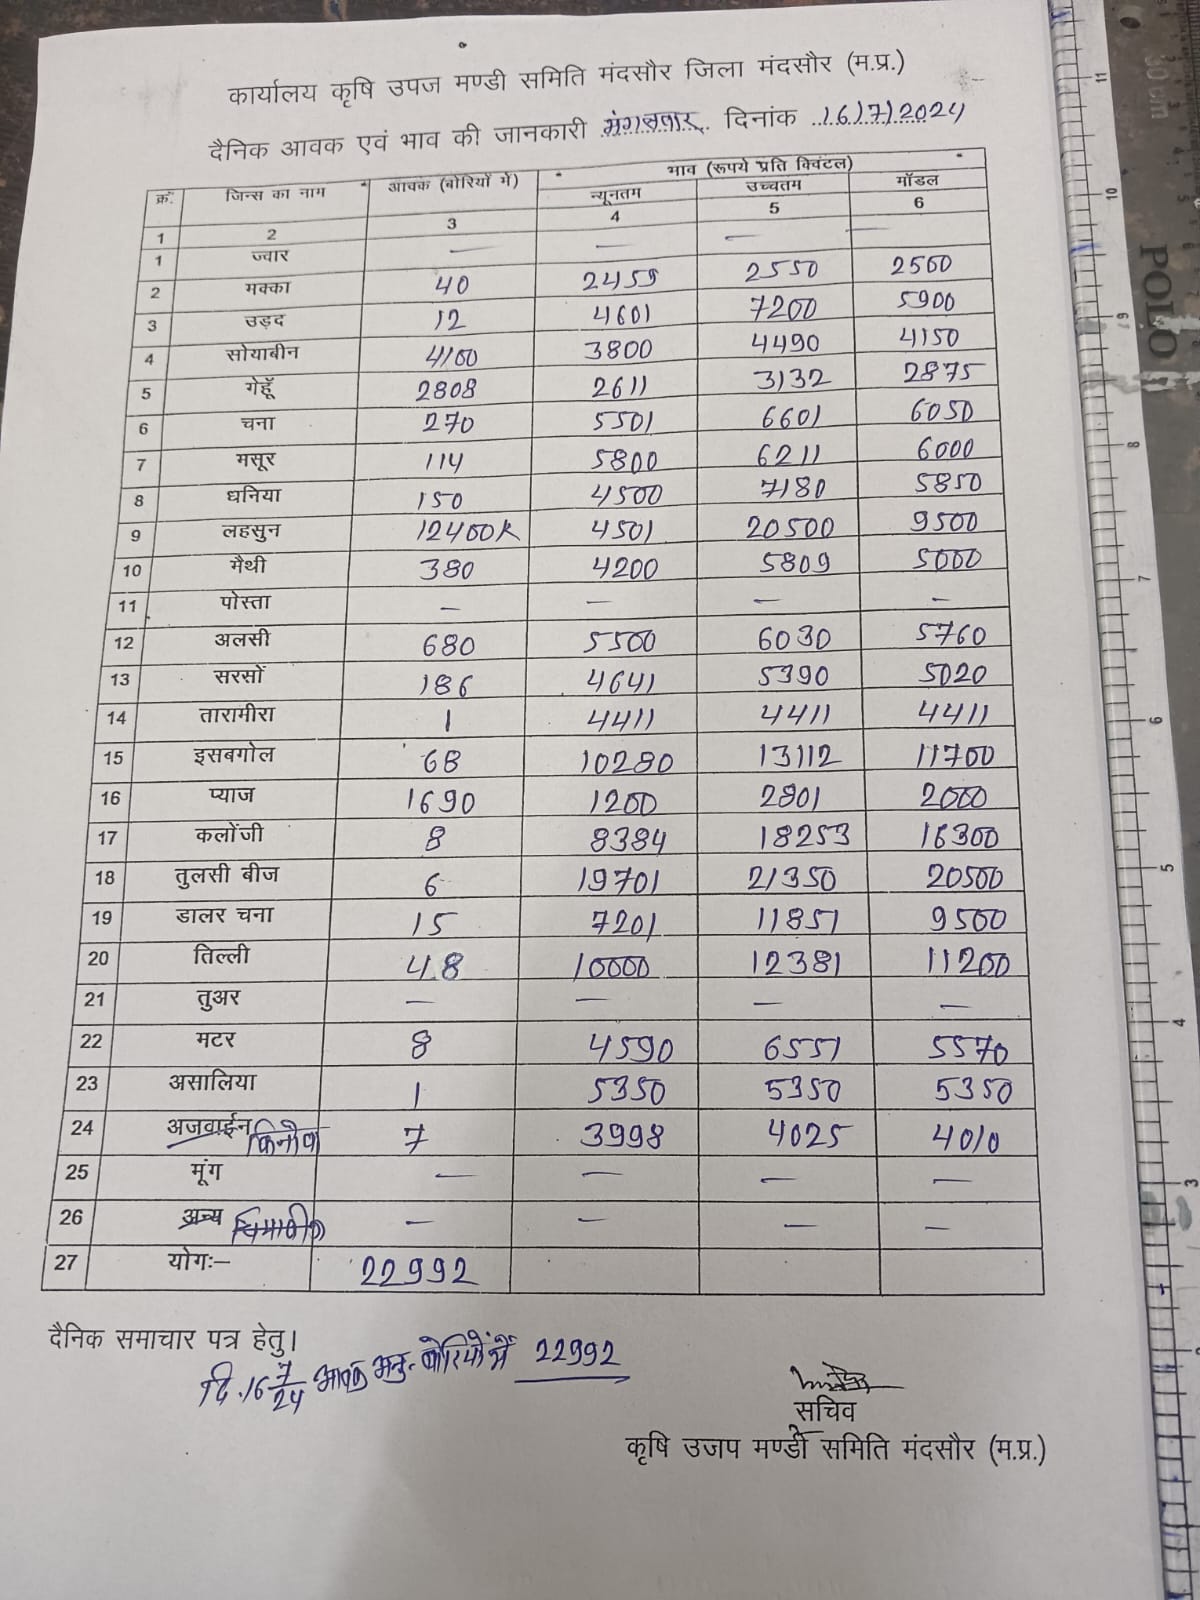 कार्यालय कृषि उपज मण्डी समिति मंदसौर जिला मंदसौर (म.प्र.)
दैनिक आवक एवं भाव की जानकारी मंगलवार दिनांक 16/7/2024
क्रं. जिन्स का नाम आवक (बोरियों में) भाव (रूपये प्रति क्विंटल)
न्यूनतम उच्चतम मॉडल
1 2 3 4 5 6
1 ज्वार — — — —
2 मक्का 40 2459 2550 2500
3 उड़द 12 4601 7200 5900
4 सोयाबीन 4100 3800 4490 4150
5 गेहूँ 2808 2611 3132 2875
6 चना 270 5501 6601 6050
7 मसूर 114 5800 6211 6000
8 धनिया 150 4500 7180 5850
9 लहसुन 12400K 4501 20500 9500
10 मैथी 380 4200 5809 5000
11 पोस्ता — — — —
12 अलसी 680 5500 6030 5760
13 सरसों 186 4641 5390 5020
14 तारामीरा 1 4411 4411 4411
15 इसबगोल 68 10280 13112 11700
16 प्याज 1690 1200 2801 2000
17 कलोंजी 8 8384 18253 16300
18 तुलसी बीज 6 19701 21350 20500
19 डालर चना 15 7201 11851 9500
20 तिल्ली 48 10000 12381 11200
21 तुअर — — — —
22 मटर 8 4590 6551 5570
23 असालिया 1 5350 5350 5350
24 अजवाईन किनोवा 7 3998 4025 4010
25 मूंग — — — —
26 अन्य — — — —
27 योगः— 22992
दैनिक समाचार पत्र हेतु।
दि. 16 7/24 आवक अनु. बोरियों में 22992
सचिव
कृषि उजप मण्डी समिति मंदसौर (म.प्र.)
11
30 cm
10
POLO
9
8
7
6
5
4
3